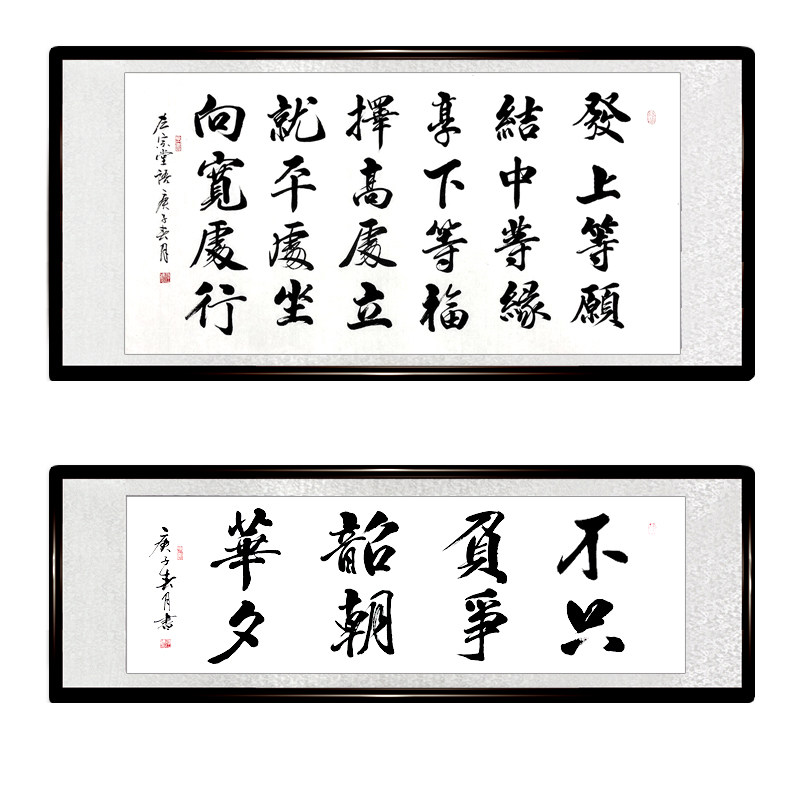 發上等願
結中等緣
享下等福
擇高處立
就平處坐
向寬處行
左宗棠語庚子春月
不負韶華
只爭朝夕
庚子春月書